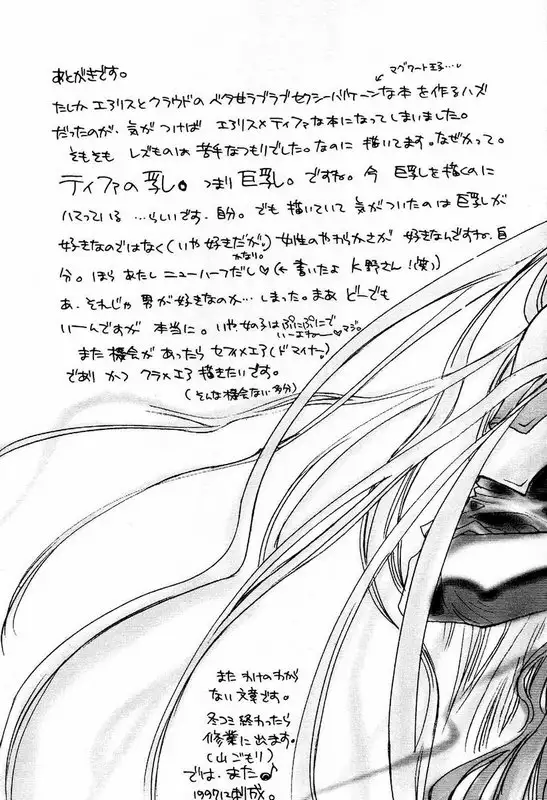 あとがきです。
マグワート王子…
たしか エアリスとクラウドの ベタ甘ラブラブセクシーバルケーンな本 を作るハズ
だったのが、気がつけば エアリス×ティファな本になってしまいました。
そもそも レズものは苦手なつもりでした。なのに 描いてます。なぜかって。
ティファの乳。つまり巨乳。ですね。今 巨乳を描くのに
ハマっている …らしいです。自分。でも 描いていて 気がついたのは 巨乳が
好きなのではなく(いや好きだが。)女性のやわらかさが 好きなんですね。自
かなり。
分。ほら あたし ニューハーフだし♡(←書いたよ 野さん!(笑))
あ、それじゃ 男が好きなのか…しまった。まあ どーでも
いーんですが 本当に。いや女の子は ぷにぷにで
いーよねー♡マジ。
また 機会が あったら セフィ×エア(ドマイナー。)
であり かつ クラ×エア 描きたいです。
(そんな機会ない 多分)
また わけのわから
ない 文章です。
冬コミ 終わったら
修業に 出ます。
(山ごもり)
では、また♪
1997